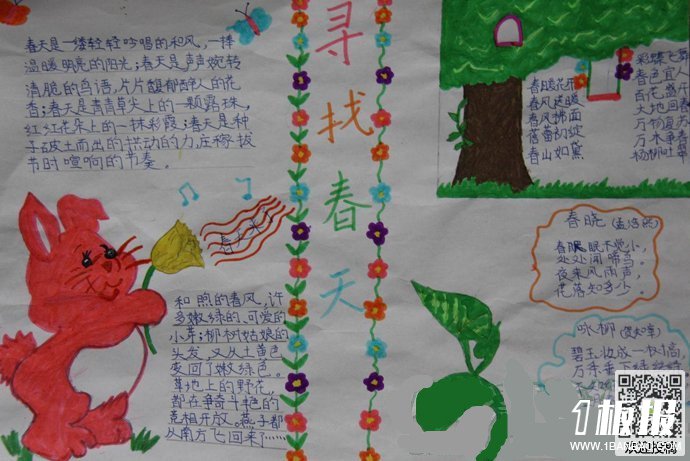 春天是一缕轻轻吟唱的和风,一捧
温暖明亮的阳光;春天是声声婉转
清脆的鸟语,片片馥郁醉人的花
香;春天是青青草尖上的一颗露珠,
红红花朵上的一抹彩霞;春天是种
子破土而出的拱动的力,庄稼拔
节时喧响的节奏。
寻找春天
春天来
和煦的春风,许
多嫩绿的、可爱的
小芽;柳树姑娘的
头发,又从土黄色
变回了嫩绿色。
草地上的野花,
都在争奇斗艳的
竞相开放。燕子都
从南方飞回来了……
春暖花开
春风送暖
春风拂面
蓓蕾初绽
春山如黛
彩蝶飞舞
春色宜人
百花盛开
大地回春
万物复苏
万木争春
杨柳吐翠
春晓(孟浩然)
春眠眠不觉小,
处处闻啼鸟。
夜来风雨声,
花落知多少。
咏柳(贺知章)
碧玉妆成一树高,
万条垂
板报
WWW.1BANBAO.COM
欢迎投稿